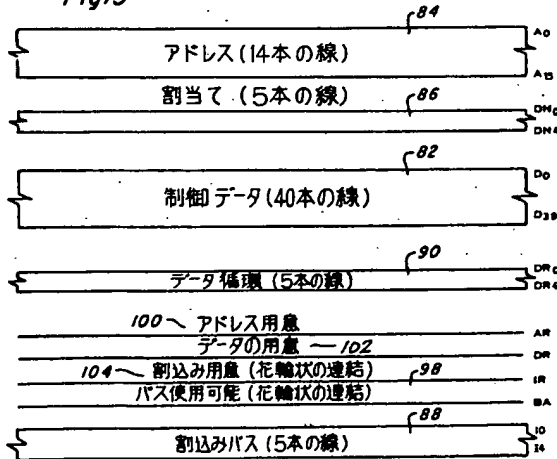 84
A0
アドレス(14本の線)
A15
割当て (5本の線) 86
DN0
DN4
82
D0
制御データ(40本の線)
D39
90
DR0
データ循環 (5本の線)
DR4
100 アドレス用意
AR
データの用意 102
DR
104 割込み用意 (花輪状の連結) 98
IR
バス使用可能 (花輪状の連結)
BA
88
I0
割込みバス (5本の線)
I4